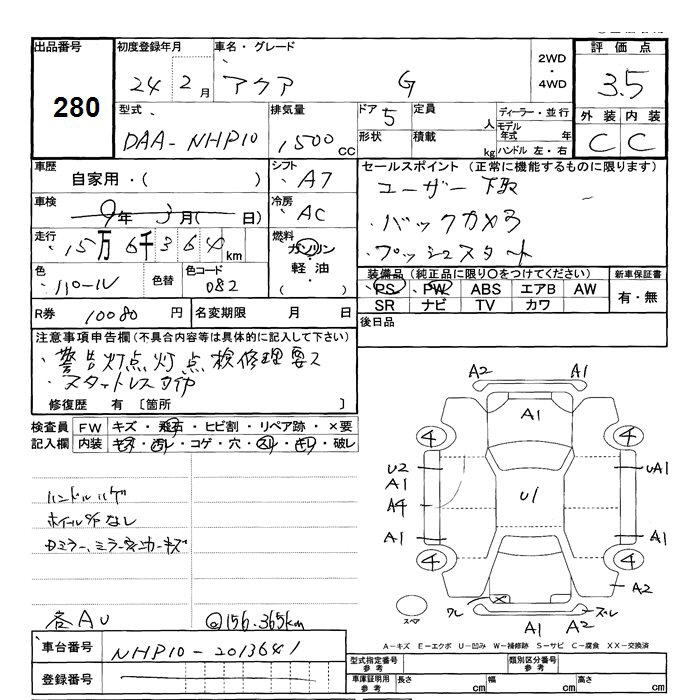 出品番号
280
初度登録年月
24年 2月
車名・グレード
アクア G
2WD
・
4WD
評価点
3.5
外装 内装
C C
型式
DAA-NHP10
排気量
1500 CC
ドア 5
定員 人
形状
積載 kg
ディーラー・並行
モデル年式 年
ハンドル 左・右
車歴
自家用・( )
シフト
A7
セールスポイント (正常に機能するものに限ります)
ユーザー下取
・バックカメラ
・プッシュスタート
車検
9年 3月( 日)
冷房
AC
走行
15万6千364km
燃料
ガソリン
・
軽油
( )
色
パール
色替
色コード
082
装備品 (純正品に限り○をつけてください)
PS・PW ABS エアB AW
SR ナビ TV カワ
新車保証書
有・無
R券 10080 円
名変期限 月 日
後日品
注意事項申告欄(不具合内容等は具体的に記入して下さい)
・警告灯点灯点検修理要ス
・スタットレスタイヤ
修復歴 有 [箇所 ]
検査員記入欄
FW キズ・飛石・ヒビ割・リペア跡・×要
内装 キズ・ヨゴレ・コゲ・穴・スレ・キレ・破レ
ハンドルハゲ
ホイールキャップなし
ドアミラー、ミラーウィンカーキズ
各AU
@156.365km
A2 A1
A1
4 4
U2
A1
A4
U1
UA1
A1 A1
4 4
A2
ワレ × ズレ
A1 A2
スペア
A-キズ E-エクボ U-凹み W-補修跡 S-サビ C-腐食 XX-交換済
車台番号
NHP10-2013641
登録番号
型式指定番号 参考
類別区分番号 参考
車庫証明用 参考
長さ cm
幅 cm
高さ cm